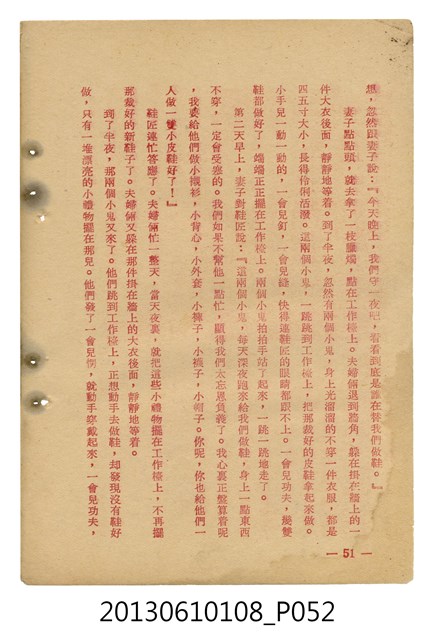 想，忽然跟妻子說：『今天晚上，我們守一夜吧，看看到底是誰在替我們做鞋。』
妻子點點頭，就去拿了一枝臘燭，點在工作檯上。夫婦倆退到牆角，躲在掛在牆上的一
件大衣後面，靜靜地等着。到了半夜，忽然有兩個小鬼，身上光溜溜的不穿一件衣服，都是
四五寸大小，長得伶俐活潑。這兩個小鬼，一跳跳到工作檯上，把那裁好的皮鞋拿起來做。
小手兒一動一動的，一會兒釘，一會兒縫，快得連鞋匠的眼睛都跟不上。一會兒功夫，幾雙
鞋都做好了，端端正正擺在工作檯上。兩個小鬼拍拍手站了起來，一跳一跳地走了。
第二天早上，妻子對鞋匠說：『這兩個小鬼，每天深夜跑來給我們做鞋，身上一點東西
不穿，一定會受寒的。我們如果不幫他一點忙，顯得我們太忘恩負義了。我心裏正盤算着呢
，我要給他們做小襯衫，小背心，小外套，小褲子，小襪子，小帽子。你呢，你也給他們一
人做一雙小皮鞋好了！』
鞋匠連忙答應了。夫婦倆忙一整天，當天夜裏，就把這些小禮物擺在工作檯上，不再擺
那裁好的新鞋子了。夫婦倆又躲在那件掛在牆上的大衣後面，靜靜地等着。
到了半夜，那兩個小鬼又來了。他們跳到工作檯上，正想動手去做鞋，却發現沒有鞋好
做，只有一堆漂亮的小禮物擺在那兒。他們發了一會兒愣，就動手穿戴起來，一會兒功夫，
— 51 —
20130610108_P052